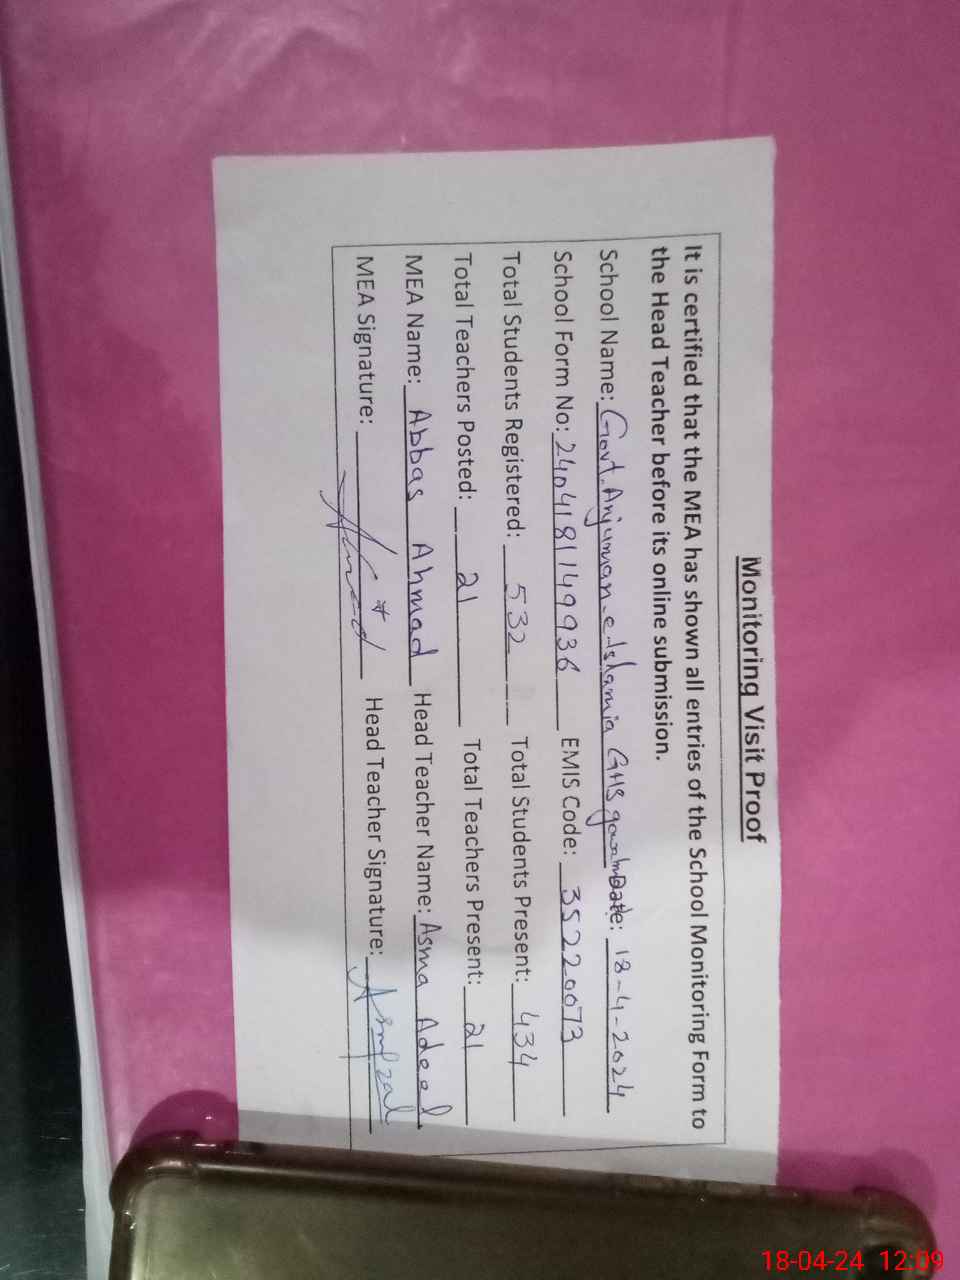 Monitoring Visit Proof
It is certified that the MEA has shown all entries of the School Monitoring Form to
the Head Teacher before its online submission.
School Name: Govt. Anjuman-e-Islamia GHS Date: 18-4-2024
School Form No: 2404181149936 EMIS Code: 35220073
Total Students Registered: 532 Total Students Present: 434
Total Teachers Posted: 21 Total Teachers Present: 21
MEA Name: Abbas Ahmad Head Teacher Name: Asma Adeel
MEA Signature: Head Teacher Signature:
18-04-24 12:09